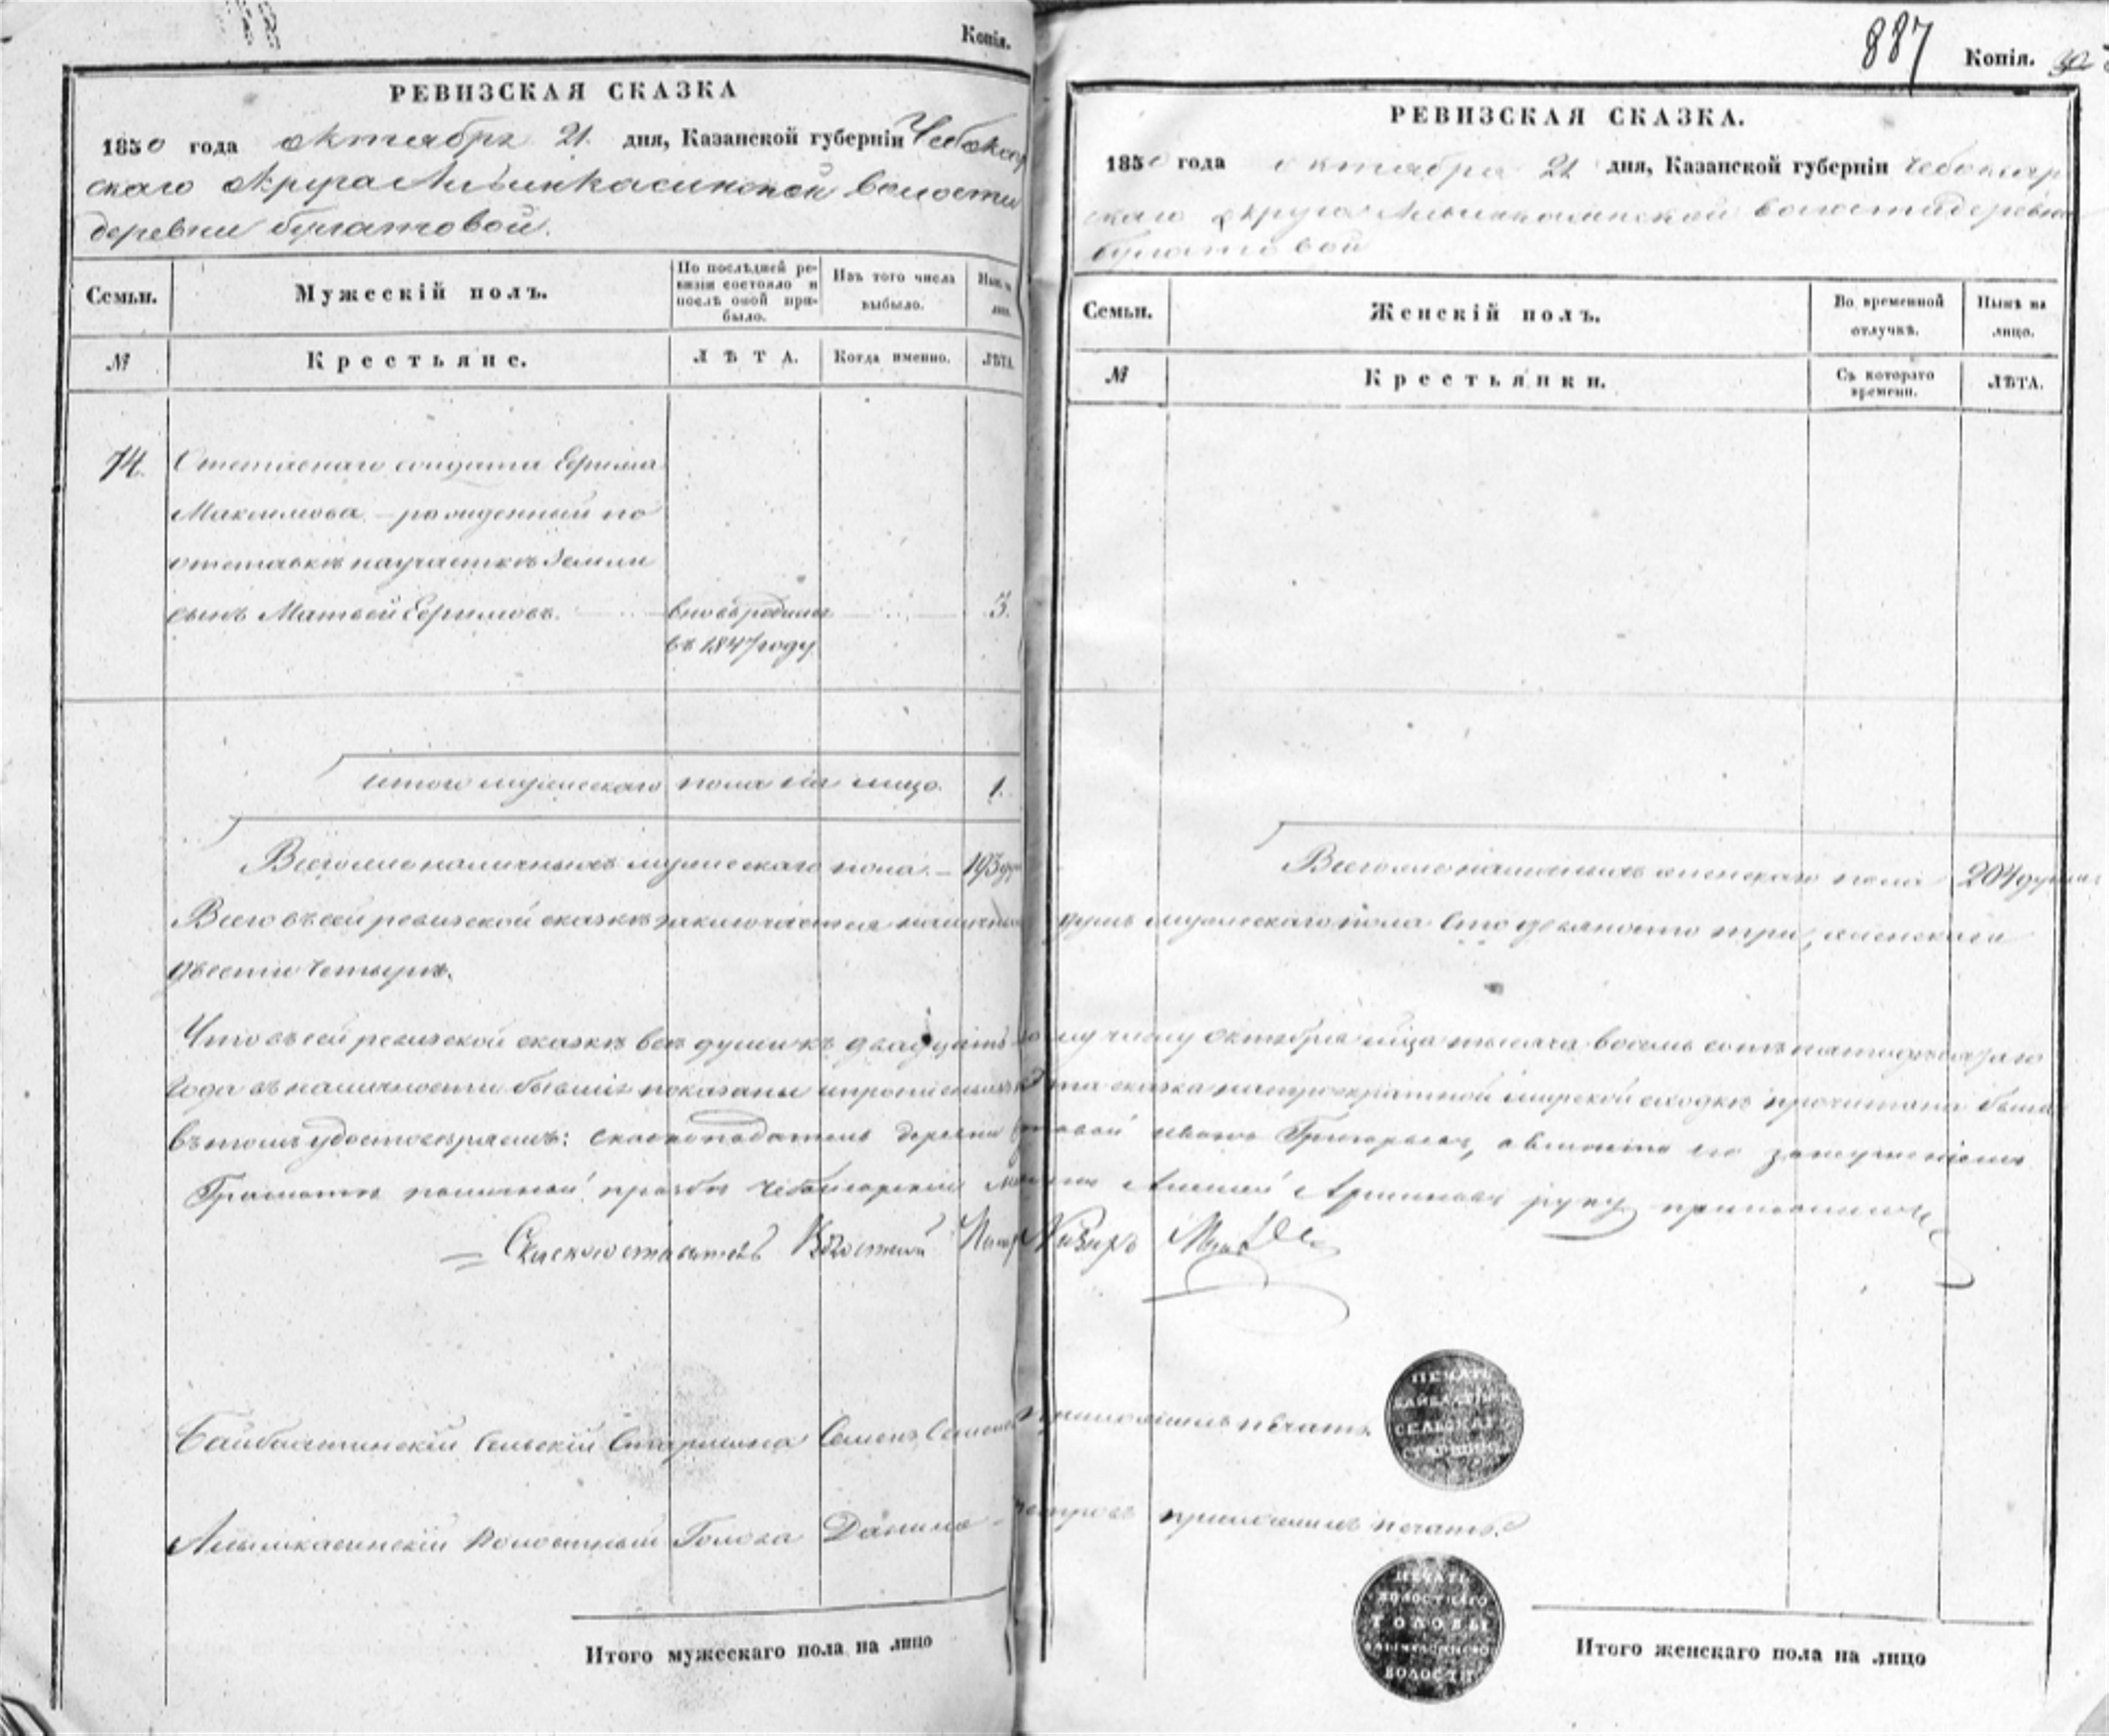 Копія.
РЕВИЗСКАЯ СКАЗКА
1850 года октября 21 дня, Казанской губерніи Чебоксар
скаго округа Алымкасинской волости
деревни булатовой.
Семьи.
Мужескій полъ.
По послѣдней ре-
визіи состояло и
послѣ оной при-
было.
Изъ того числа
выбыло.
Нынѣ на
лицо.
№
Крестьяне.
ЛѢТА.
Когда именно.
ЛѢТА.
74.
Отставнаго солдата Ефима
Максимова – рожденный по
отставкѣ на участкѣ земли
сынъ Матвей Ефимовъ.
вновь родился
въ 1847 году
3.
итого мужескаго пола на лицо.
1.
Всего же наличныхъ мужескаго пола. – 193 ду
Всего въ сей ревизской сказкѣ заключается наличныхъ
двести четыре.
Что въ сей ревизской сказкѣ все души къ двадцать
года въ наличности бывшія показаны
въ томъ удостоверяемъ: сказкоподатель деревни
Грамоте по личной прозбѣ чебоксарский
Сказкосоставитель Волостной
Байбахтинскій Сельскій Старшина Семенъ Семенов
Алымкасинскій Волостный Голова Данило –
Итого мужескаго пола на лицо
887
Копія.
РЕВИЗСКАЯ СКАЗКА.
1850 года октября 21 дня, Казанской губерніи Чебоксар
скаго округа Алымкасинской волости деревни
булатовой
Семьи.
Женскій полъ.
Во временной
отлучкѣ.
Нынѣ на
лицо.
№
Крестьянки.
Съ котораго
времени.
ЛѢТА.
Всего же наличныхъ женскаго пола 204 души
душъ мужескаго пола Сто девяносто три, женскаго
му числу Октября мѣсяца тысяча восемь сотъ пятидесятаго
сказка на мирской сходкѣ прочитана была
иванъ Григорьевъ, а вместо его за неумениемъ
Алексей руку приложилъ
приложилъ печать.
ПЕЧАТЬ
СЕЛЬСКАГО
СТАРШИНЫ
Петровъ приложилъ печать.
ПЕЧАТЬ
ВОЛОСТНАГО
ГОЛОВЫ
ВОЛОСТИ
Итого женскаго пола на лицо